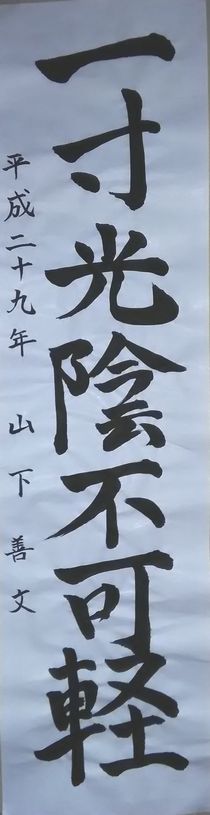 一寸光陰不可軽
平成二十九年 山下善文